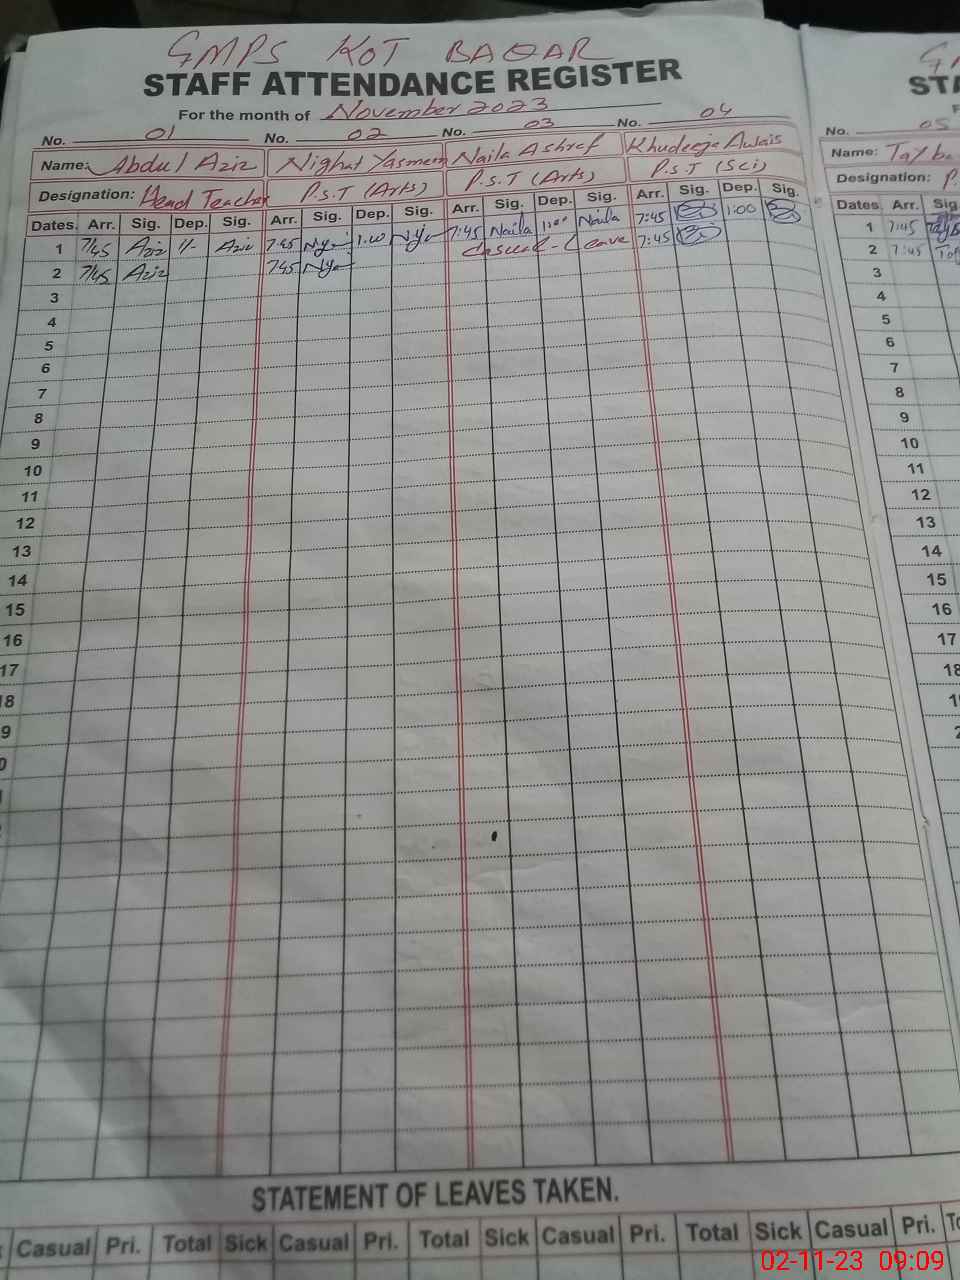 GMPS KOT BAQAR
STAFF ATTENDANCE REGISTER
For the month of November 2023
No. 01 No. 02 No. 03 No. 04
Name: Abdul Aziz Nighat Yasmeen Naila Ashraf Khudeeja Awais
Designation: Head Teacher P.S.T (Arts) P.S.T (Arts) P.S.T (Sci)
Dates Arr. Sig. Dep. Sig. Arr. Sig. Dep. Sig. Arr. Sig. Dep. Sig. Arr. Sig. Dep. Sig.
1 7/45 Aziz 1/- Aziz 7:45 1:00 7:45 Naila 1:00 Naila 7:45 1:00
2 7/45 Aziz 745 Casual - Leave 7:45
3
4
5
6
7
8
9
10
11
12
13
14
15
16
17
18
9
0
STATEMENT OF LEAVES TAKEN.
Casual Pri. Total Sick Casual Pri. Total Sick Casual Pri. Total Sick Casual Pri.
No. 05
Name:
Designation: P.
Dates Arr. Sig.
1 7:45
2 7:45
3
4
5
6
7
8
9
10
11
12
13
14
15
16
17
18
02-11-23 09:09